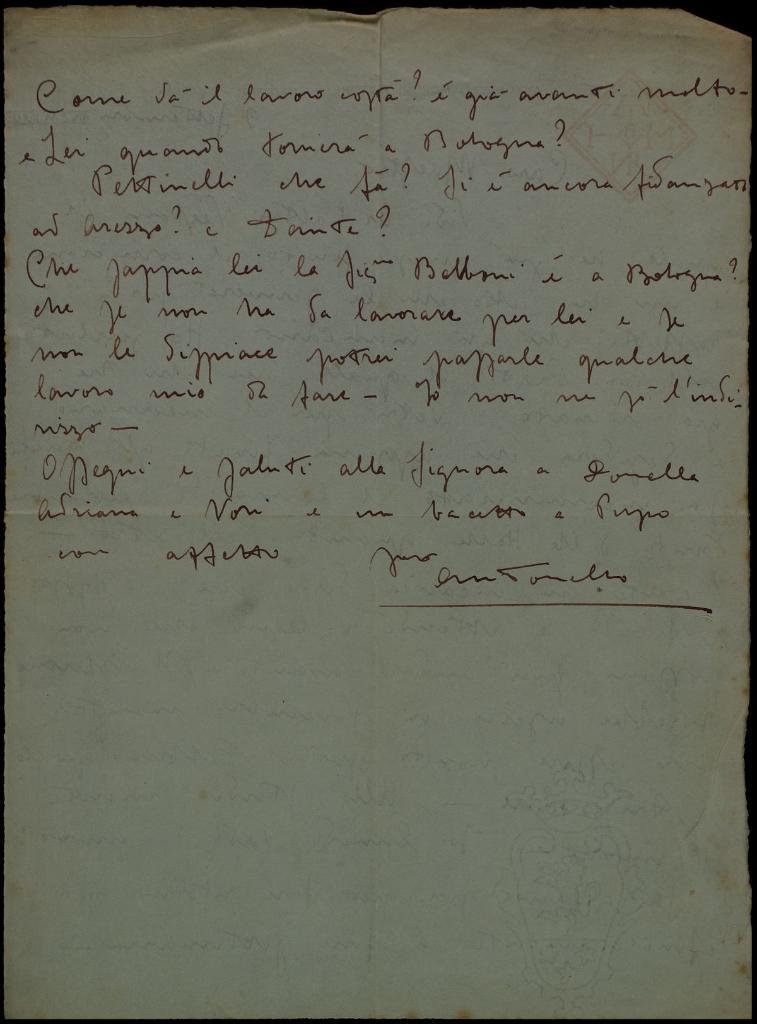 Come va il lavoro costà? è già avanti molto -
e Lei quando tornerà a Bologna?
Pettinelli che fà? Si è ancora fidanzato
ad Arezzo? e Dante?
Che sappia lei la Sig.na Balboni è a Bologna?
che se non ha da lavorare per lei e se
non le dispiace potrei passarle qualche
lavoro mio da fare - Io non ne sò l'indi-
rizzo -
Ossequi e saluti alla Signora a Donella
Adriana e Nori e un bacetto a Pupo
con affetto suo
Antonello